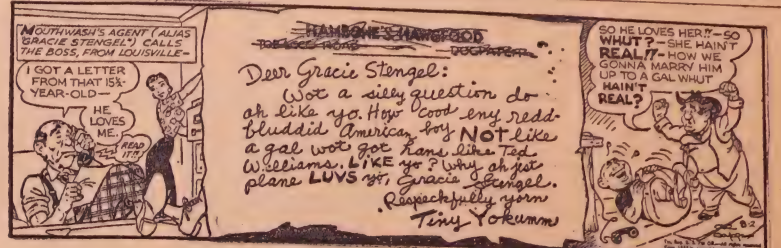 MOUTHWASH'S AGENT (ALIAS
"GRACIE STENGEL") CALLS
THE BOSS, FROM LOUISVILLE—
I GOT A LETTER
FROM THAT 15½-
YEAR-OLD—
HE
LOVES
ME.
READ
IT!!
HAMBONE'S HAWGFOOD
DOGPATCH
Deer Gracie Stengel:
Wot a silly question do
ah like yo. How cood eny redd-
bluddid American boy NOT like
a gal wot got hans like Ted
Williams. LIKE yo? Why ah jest
plane LUVS yo, Gracie Stengel.
Respeckfully yorn
Tiny Yokumm
SO HE LOVES HER!!—SO
WHUT?—SHE HAIN'T
REAL!!—HOW WE
GONNA MARRY HIM
UP TO A GAL WHUT
HAIN'T
REAL?
8-2